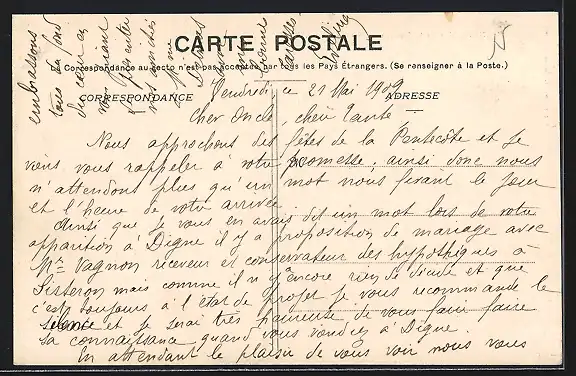 CARTE POSTALE
La Correspondance au recto n'est pas acceptée par tous les Pays Étrangers. (Se renseigner à la Poste.)
CORRESPONDANCE
ADRESSE
Vendredi, ce 21 Mai 1909
Cher Oncle, chère Tante,
Nous approchons des fêtes de la Pentecôte et je
viens vous rappeler à votre promesse, ainsi donc nous
n'attendons plus qu'un mot nous fixant le jour
et l'heure de votre arrivée
Ainsi que je vous en avais dit un mot lors de votre
apparition à Digne il y a proposition de mariage avec
Mr Vagnon receveur et conservateur des hypothèques à
Sisteron mais comme il n'y a encore rien de décidé et que
c'est toujours à l'état de projet je vous recommande le
silence et je serai très heureuse de vous faire faire
sa connaissance quand vous viendrez à Digne.
En attendant le plaisir de vous voir nous vous
embrassons
tous du fond
du cœur en
vous priant